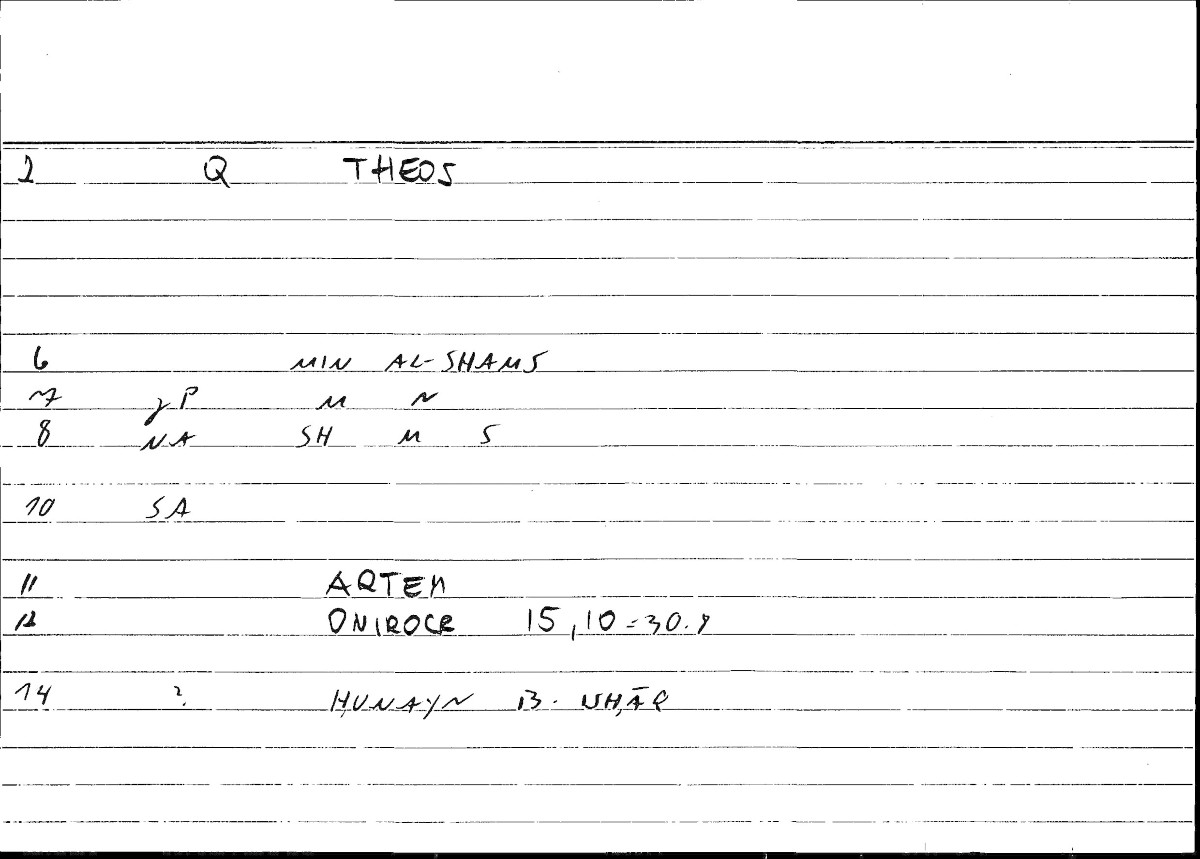 2 Q THEOS
6 MIN AL-SHAMS
7 γP M N
8 NA SH M S
10 SA
11 ARTEM
12 ONIROCR 15,10=30.8
14 ? ḤUNAYN B. ISḤĀQ